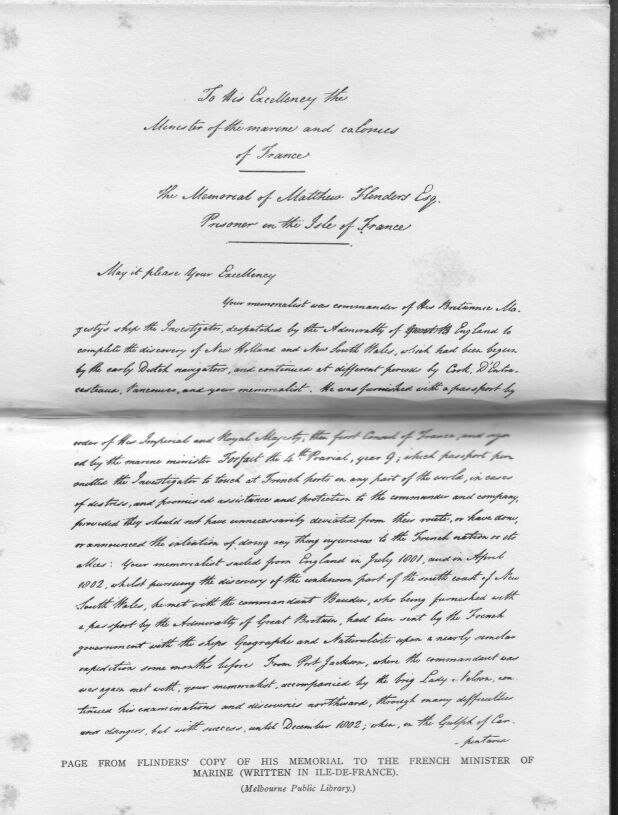 To His Excellency the
Minister of the marine and colonies
of France
The Memorial of Matthew Flinders Esq.
Prisoner in the Isle of France
May it please Your Excellency
Your memorialist was commander of His Britannic Ma-
jesty's ship the Investigator, despatched by the Admiralty of England to
complete the discovery of New Holland and New South Wales, which had been begun
by the early Dutch navigators, and continued at different periods by Cook, D'Entre-
casteaux, Vancouver, and your memorialist. He was furnished with a passport by
order of His Imperial and Royal Majesty, then first Consul of France, and sign-
ed by the marine minister Forfait the 4th Prairial, year 9; which passport per-
mitted the Investigator to touch at French ports in any part of the world, in cases
of distress, and promised assistance and protection to the commander and company,
provided they should not have unnecessarily deviated from their route, or have done,
or announced the intention of doing any thing injurious to the French nation or its
allies: Your memorialist sailed from England in July 1801, and in April
1802, whilst pursuing the discovery of the unknown part of the south coast of New
South Wales, he met with the commandant Baudin, who being furnished with
a passport by the Admiralty of Great Britain, had been sent by the French
government with the ships Geographe and Naturaliste upon a nearly similar
expedition some months before From Port Jackson, where the commandant was
was again met with, your memorialist, accompanied by the brig Lady Nelson, con-
tinued his examinations and discoveries northward, through many difficulties
and dangers, but with success, until December 1802; when, in the Gulph of Car-
-pentaria
PAGE FROM FLINDERS' COPY OF HIS MEMORIAL TO THE FRENCH MINISTER OF
MARINE (WRITTEN IN ILE-DE-FRANCE).
(Melbourne Public Library.)